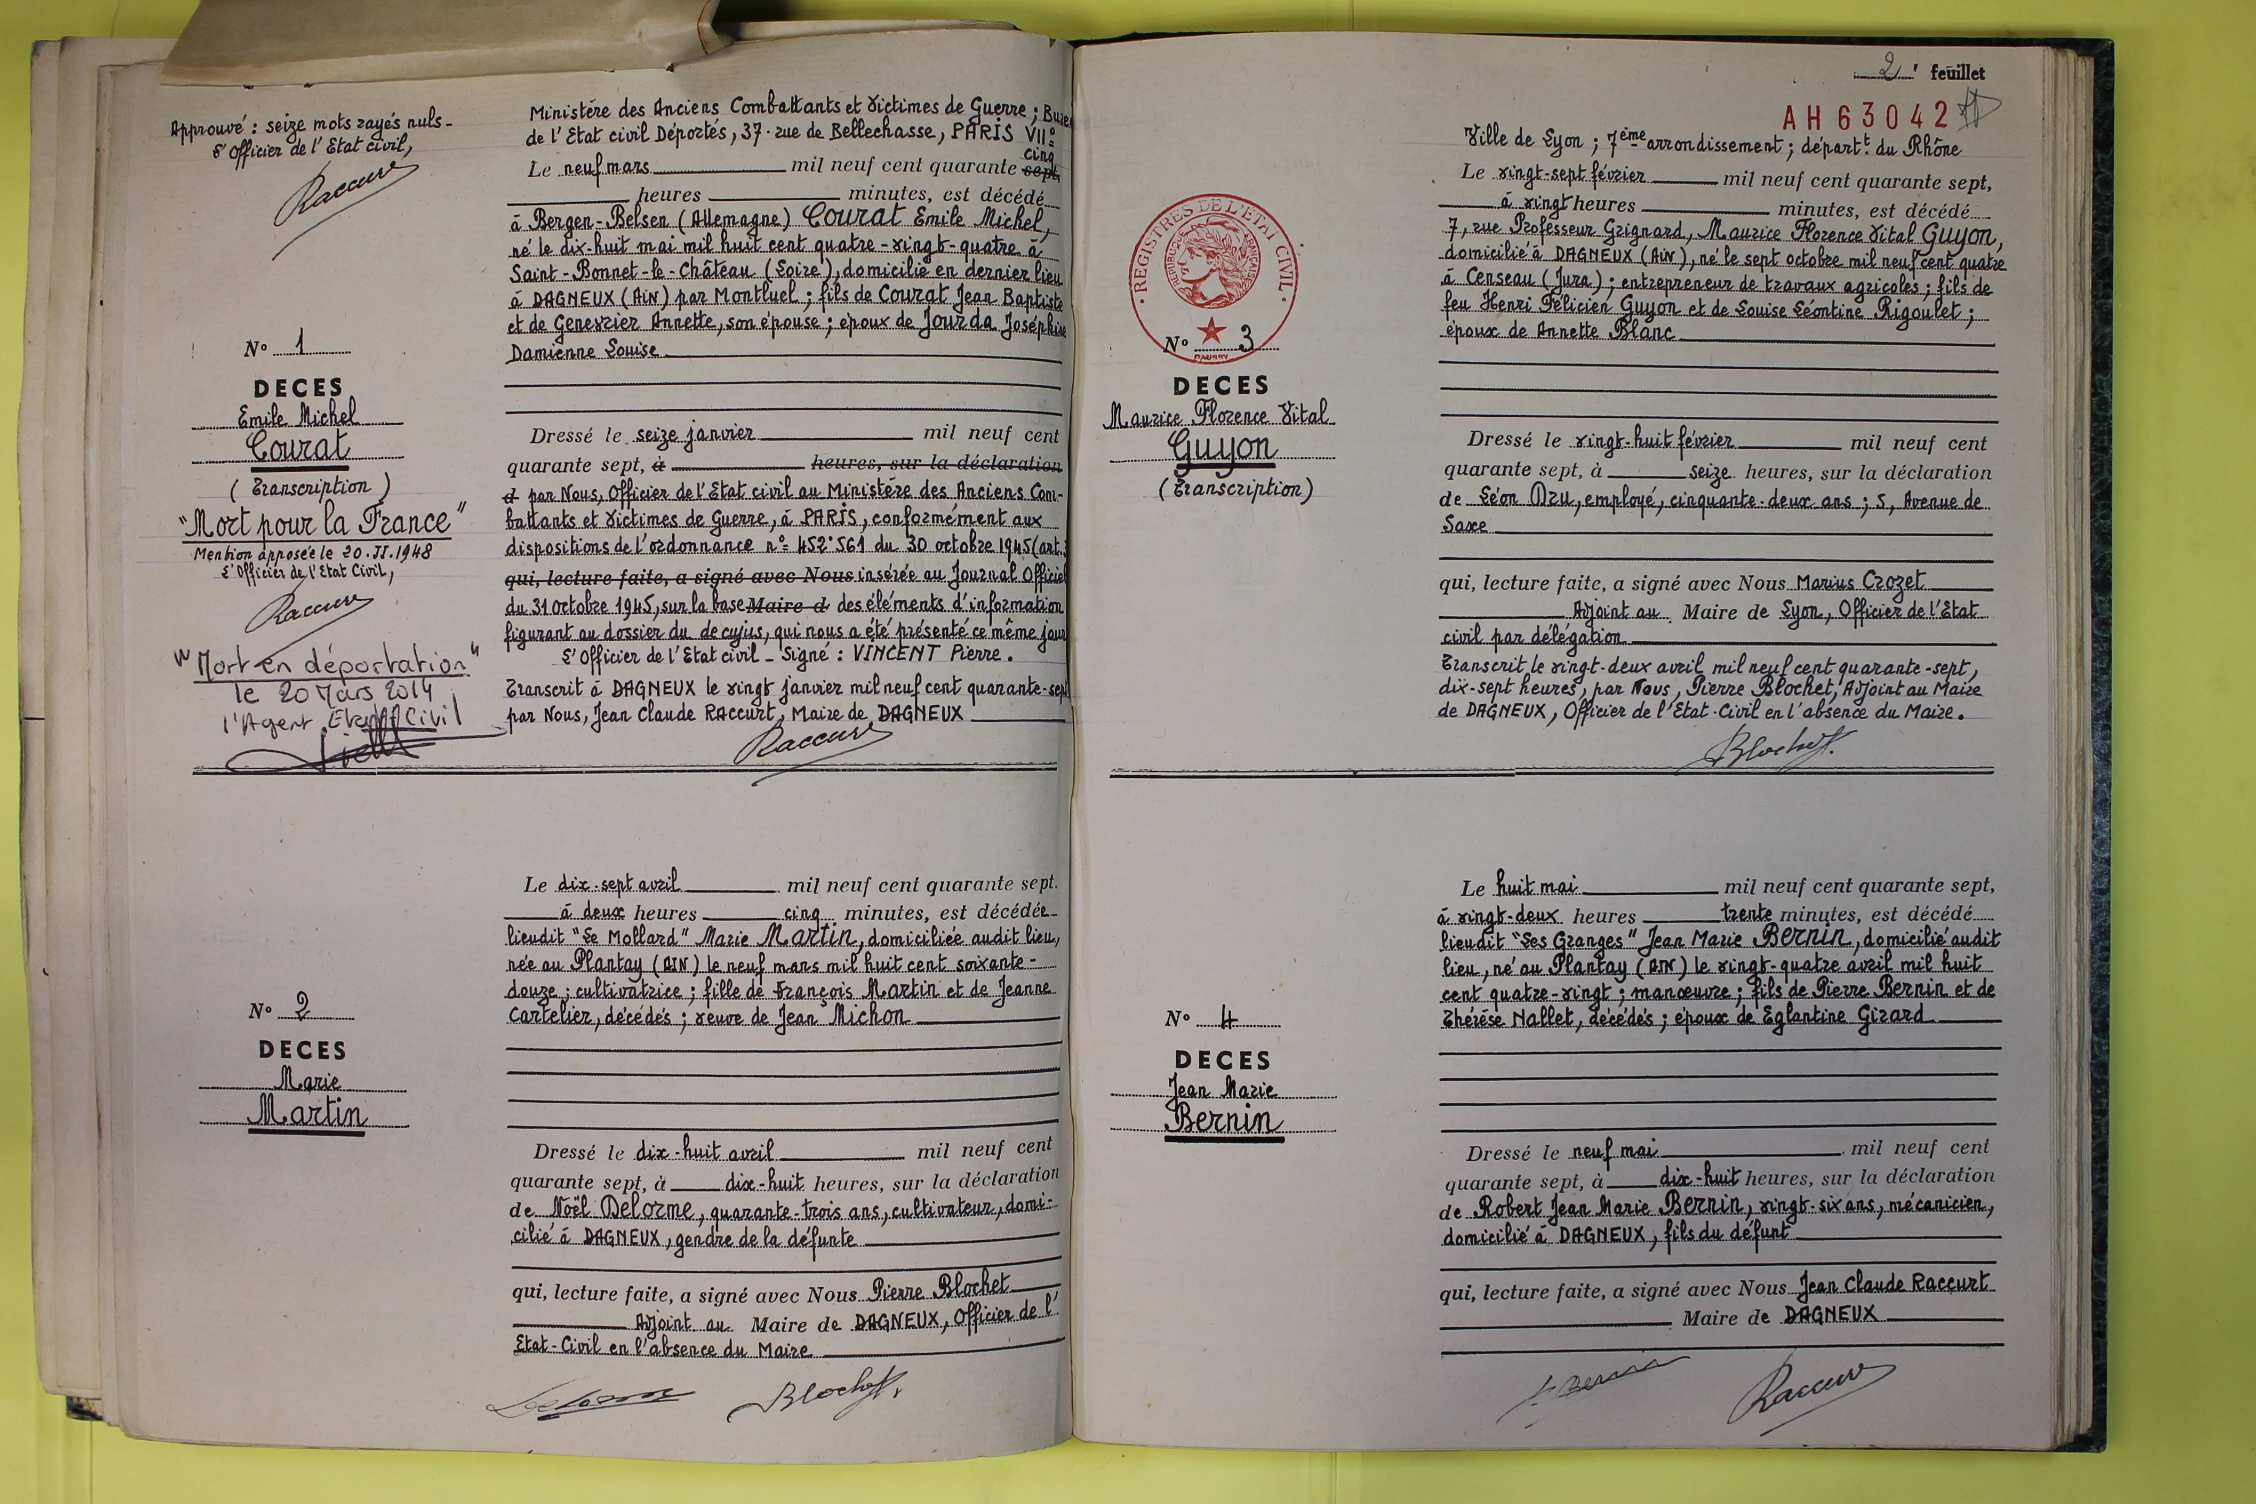 Approuvé : seize mots rayés nuls -
L'Officier de l'Etat civil,
Raccurt
N° 1
DECES
Emile Michel
Courat
(Transcription)
"Mort pour la France"
Mention apposée le 20.II.1948
L'Officier de l'Etat Civil,
Raccurt
"Mort en déportation"
le 20 Mars 2014
l'Agent Etat Civil
Ministère des Anciens Combattants et Victimes de Guerre ;
de l'Etat civil Déportés, 37 - rue de Bellechasse, PARIS VII°
cinq
Le neuf mars mil neuf cent quarante sept,
heures minutes, est décédé
à Bergen-Belsen (Allemagne) Courat Emile Michel,
né le dix-huit mai mil huit cent quatre-vingt-quatre à
Saint-Bonnet-le-Château (Loire), domicilié en dernier lieu
à DAGNEUX (AIN) par Montluel ; fils de Courat Jean Baptiste
et de Genevrier Annette, son épouse ; époux de Jourda Joséphine
Damienne Louise
Dressé le seize janvier mil neuf cent
quarante sept, à heures, sur la déclaration
d par Nous, Officier de l'Etat civil au Ministère des Anciens Com-
battants et Victimes de Guerre, à PARIS, conformément aux
dispositions de l'ordonnance n° 452.561 du 30 octobre 1945 (art.
qui, lecture faite, a signé avec Nous insérée au Journal Officiel
du 31 octobre 1945, sur la base Maire d des éléments d'information
figurant au dossier du de cujus, qui nous a été présenté ce même jour
L'Officier de l'Etat civil - Signé : VINCENT Pierre.
Transcrit à DAGNEUX le vingt janvier mil neuf cent quarante-sept
par Nous, Jean Claude RACCURT, Maire de DAGNEUX
Raccurt
N° 2
DECES
Marie
Martin
Le dix-sept avril mil neuf cent quarante sept.
à deux heures cinq minutes, est décédée
lieudit "Le Mollard" Marie Martin, domiciliée audit lieu,
née au Plantay (AIN) le neuf mars mil huit cent soixante-
douze ; cultivatrice ; fille de François Martin et de Jeanne
Cartelier, décédés ; veuve de Jean Michon
Dressé le dix-huit avril mil neuf cent
quarante sept, à dix-huit heures, sur la déclaration
de Noël Delorme, quarante-trois ans, cultivateur, domi-
cilié à DAGNEUX, gendre de la défunte
qui, lecture faite, a signé avec Nous Pierre Blochet
Adjoint au Maire de DAGNEUX, Officier de l'
Etat-Civil en l'absence du Maire
Delorme Blochet
2' feuillet
AH 63042
REGISTRES DE L'ETAT CIVIL
REPUBLIQUE FRANÇAISE
N° 3
DECES
Maurice Florence Vital
Guyon
(Transcription)
Ville de Lyon ; 7ème arrondissement ; départt du Rhône
Le vingt-sept février mil neuf cent quarante sept,
à vingt heures minutes, est décédé
7, rue Professeur Grignard, Maurice Florence Vital Guyon,
domicilié à DAGNEUX (AIN), né le sept octobre mil neuf cent quatre
à Censeau (Jura) ; entrepreneur de travaux agricoles ; fils de
feu Henri Félicien Guyon et de Louise Léontine Rigoulet ;
époux de Annette Blanc
Dressé le vingt-huit février mil neuf cent
quarante sept, à seize heures, sur la déclaration
de Léon Dru, employé, cinquante-deux ans ; 5, Avenue de
Saxe
qui, lecture faite, a signé avec Nous Marius Crozet
Adjoint au Maire de Lyon, Officier de l'Etat
civil par délégation
Transcrit le vingt-deux avril mil neuf cent quarante-sept,
dix-sept heures, par Nous, Pierre Blochet, Adjoint au Maire
de DAGNEUX, Officier de l'Etat-Civil en l'absence du Maire.
Blochet
N° 4
DECES
Jean Marie
Bernin
Le huit mai mil neuf cent quarante sept,
à vingt-deux heures trente minutes, est décédé
lieudit "Les Granges" Jean Marie Bernin, domicilié audit
lieu, né au Plantay (AIN) le vingt-quatre avril mil huit
cent quatre-vingt ; manœuvre ; fils de Pierre Bernin et de
Thérèse Nallet, décédés ; époux de Eglantine Girard
Dressé le neuf mai mil neuf cent
quarante sept, à dix-huit heures, sur la déclaration
de Robert Jean Marie Bernin, vingt-six ans, mécanicien,
domicilié à DAGNEUX, fils du défunt
qui, lecture faite, a signé avec Nous Jean Claude Raccurt
Maire de DAGNEUX
Bernin Raccurt